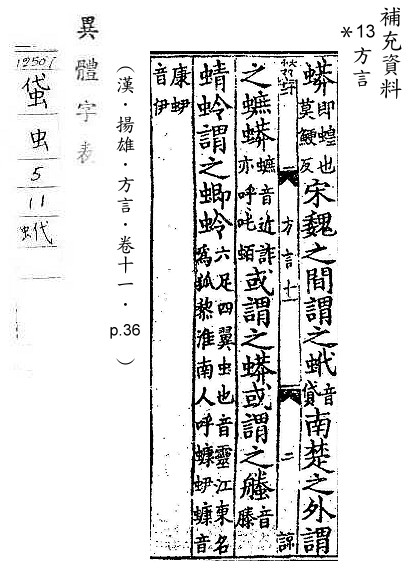 補充資料
*13方言
蟒即蝗也莫鯁反宋魏之間謂之䖧音貸南楚之外謂
方言十一 二 諒
之蟅蟒蟅音近詐亦呼吒蛨或謂之蟒或謂之螣音滕
蜻蛉謂之蝍蛉六足四翼虫也音靈江東名為狐黎淮南人呼蠊䖲蠊音
康䖲音伊
(漢·揚雄·方言·卷十一·p.36)
異體字表
1250/
蟘
虫
5
11
䖧